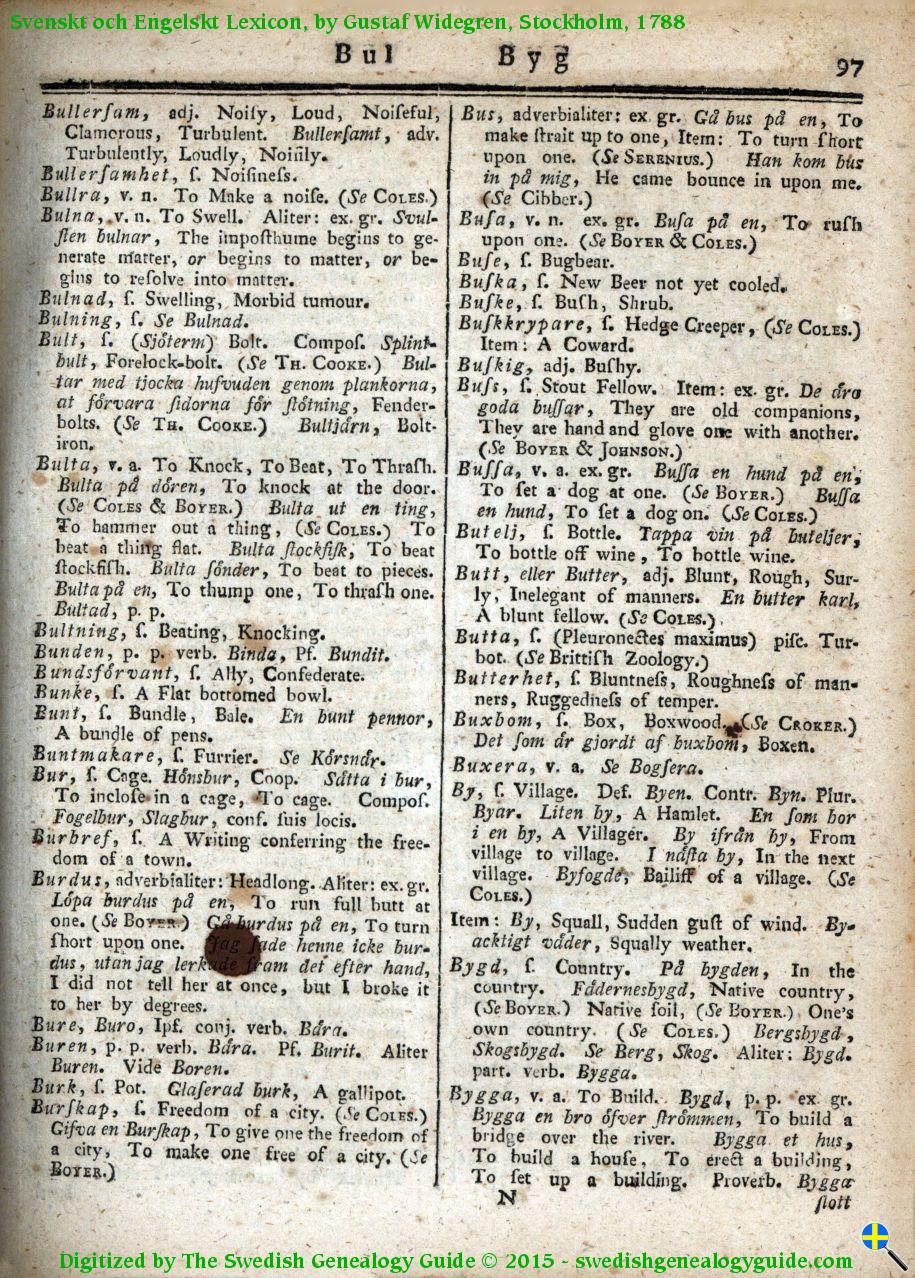 Svenskt och Engelskt Lexicon, by Gustaf Widegren, Stockholm, 1788
Bul Byg 97
Bullerſam, adj. Noiſy, Loud, Noiſeful,
Clamorous, Turbulent. Bullerſamt, adv.
Turbulently, Loudly, Noiſily.
Bullerſamhet, ſ. Noiſineſs.
Bullra, v. n. To Make a noiſe. (Se COLES.)
Bulna, v. n. To Swell. Aliter: ex. gr. Svul-
ſten bulnar, The impoſthume begins to ge-
nerate matter, or begins to matter, or be-
gins to reſolve into matter.
Bulnad, ſ. Swelling, Morbid tumour.
Bulning, ſ. Se Bulnad.
Bult, ſ. (Sjöterm) Bolt. Compoſ. Splint-
bult, Forelock-bolt. (Se TH. COOKE.) Bul-
tar med tjocka hufvuden genom plankorna,
at förvara ſidorna för ſtötning, Fender-
bolts. (Se TH. COOKE.) Bultjärn, Bolt-
iron.
Bulta, v. a. To Knock, To Beat, To Thraſh.
Bulta på dören, To knock at the door.
(Se COLES & BOYER.) Bulta ut en ting,
To hammer out a thing, (Se COLES.) To
beat a thing flat. Bulta ſtockfiſk, To beat
ſtockfiſh. Bulta ſönder, To beat to pieces.
Bulta på en, To thump one, To thraſh one.
Bultad, p. p.
Bultning, ſ. Beating, Knocking.
Bunden, p. p. verb. Binda, Pf. Bundit.
Bundsförvant, ſ. Ally, Confederate.
Bunke, ſ. A Flat bottomed bowl.
Bunt, ſ. Bundle, Bale. En bunt pennor,
A bundle of pens.
Buntmakare, ſ. Furrier. Se Körsnär.
Bur, ſ. Cage. Hönsbur, Coop. Sätta i bur,
To incloſe in a cage, To cage. Compoſ.
Fogelbur, Slagbur, conf. ſuis locis.
Burbref, ſ. A Writing conferring the free-
dom of a town.
Burdus, adverbialiter: Headlong. Aliter: ex. gr.
Löpa burdus på en, To run full butt at
one. (Se BOYER.) Gå burdus på en, To turn
ſhort upon one. Jag ſade henne icke bur-
dus, utan jag lerkade fram det efter hand,
I did not tell her at once, but I broke it
to her by degrees.
Bure, Buro, Ipf. conj. verb. Bära.
Buren, p. p. verb. Bära. Pf. Burit. Aliter
Buren. Vide Boren.
Burk, ſ. Pot. Glaſerad burk, A gallipot.
Burſkap, ſ. Freedom of a city. (Se COLES.)
Gifva en Burſkap, To give one the freedom of
a city, To make one free of a city. (Se
BOYER.)
Bus, adverbialiter: ex gr. Gå bus på en, To
make ſtrait up to one, Item: To turn ſhort
upon one. (Se SERENIUS.) Han kom bus
in på mig, He came bounce in upon me.
(Se Cibber.)
Buſa, v. n. ex. gr. Buſa på en, To ruſh
upon one. (Se BOYER & COLES.)
Buſe, ſ. Bugbear.
Buſka, ſ. New Beer not yet cooled.
Buſke, ſ. Buſh, Shrub.
Buſkkrypare, ſ. Hedge Creeper, (Se COLES.)
Item: A Coward.
Buſkig, adj. Buſhy.
Buſs, ſ. Stout Fellow. Item: ex. gr. De äro
goda buſſar, They are old companions,
They are hand and glove one with another.
(Se BOYER & JOHNSON.)
Buſſa, v. a. ex. gr. Buſſa en hund på en,
To ſet a dog at one. (Se BOYER.) Buſſa
en hund, To ſet a dog on. (Se COLES.)
Butelj, ſ. Bottle. Tappa vin på buteljer,
To bottle off wine, To bottle wine.
Butt, eller Butter, adj. Blunt, Rough, Sur-
ly, Inelegant of manners. En butter karl,
A blunt fellow. (Se COLES.)
Butta, ſ. (Pleuronectes maximus) piſc. Tur-
bot. (Se Brittiſh Zoology.)
Butterhet, ſ. Bluntneſs, Roughneſs of man-
ners, Ruggedneſs of temper.
Buxbom, ſ. Box, Boxwood. (Se CROKER.)
Det ſom är gjordt af buxbom, Boxen.
Buxera, v. a. Se Bogſera.
By, ſ. Village. Def. Byen. Contr. Byn. Plur.
Byar. Liten by, A Hamlet. En ſom bor
i en by, A Villager. By ifrån by, From
village to village. I näſta by, In the next
village. Byfogde, Bailiff of a village. (Se
COLES.)
Item: By, Squall, Sudden guſt of wind. By-
acktigt väder, Squally weather.
Bygd, ſ. Country. På bygden, In the
country. Fädernesbygd, Native country,
(Se BOYER.) Native ſoil, (Se BOYER.) One's
own country. (Se COLES.) Bergsbygd,
Skogsbygd. Se Berg, Skog. Aliter: Bygd.
part. verb. Bygga.
Bygga, v. a. To Build. Bygd, p. p. ex gr.
Bygga en bro öfver ſtrömmen, To build a
bridge over the river. Bygga et hus,
To build a houſe, To erect a building,
To ſet up a building. Proverb. Bygga
N ſlott
Digitized by The Swedish Genealogy Guide © 2015 - swedishgenealogyguide.com